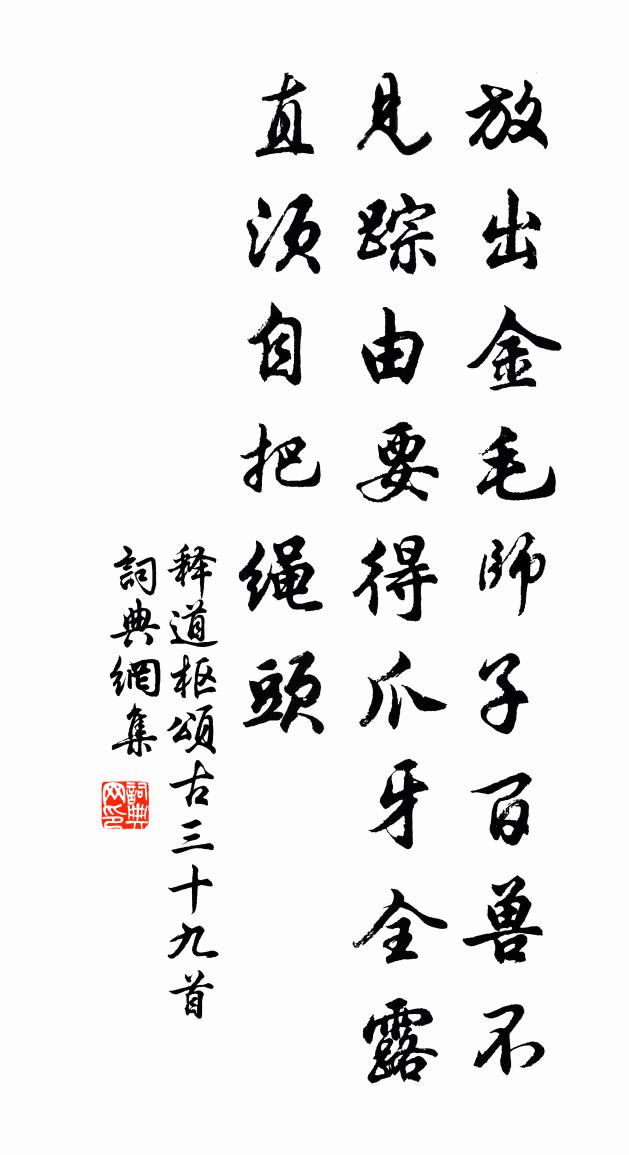 放出金毛師子百兽不
見踪由要得爪牙全露
直须自把绳頭
释道枢頌古三十九首
詞典網集
詞典网印